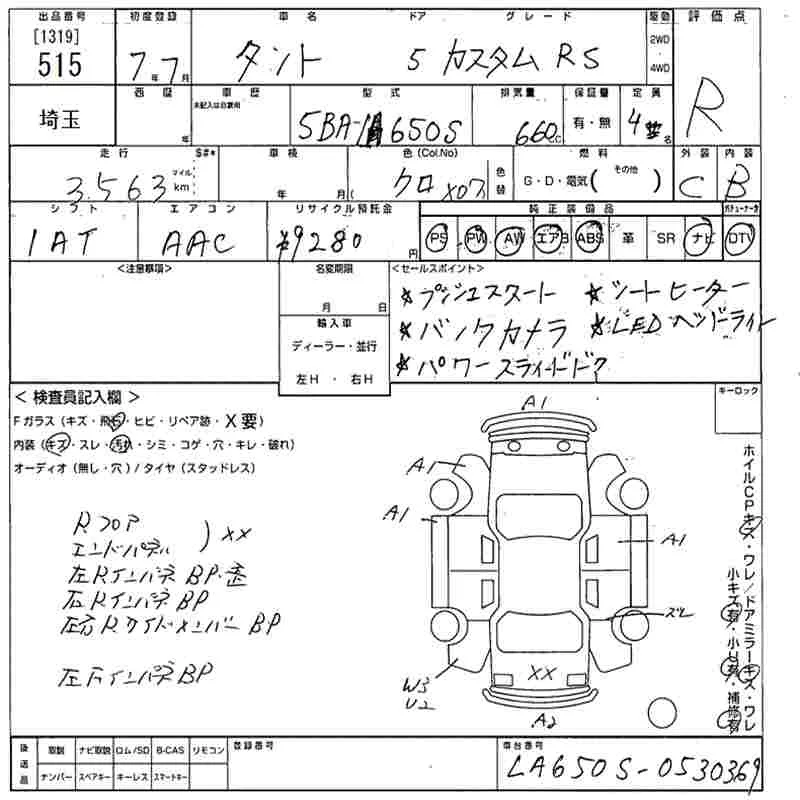 出品番号 初度登録 車名 ドア グレード 駆動 評価点
[1319]
515 7年7月 タント 5 カスタム RS 2WD・4WD R
西暦 車歴 型式 排気量 保証量 定員
未記入は自家用
埼玉 年 5BA- 650S 660cc 有・無 4名
走行 S#* 車検 色(Col.No) 燃料 外装 内装
3563 マイル km 年 月( クロ X07 色替 G・D・電気( その他 ) C B
シフト エアコン リサイクル預託金 純正装備品
IAT AAC ¥9280円 PS PW AW エアB ABS 革 SR ナビ DTV
<注意事項> 名変期限 <セールスポイント>
月 日
輸入車
ディーラー・並行
左H・右H
☆プッシュスタート ☆シートヒーター
☆バックカメラ ☆LEDヘッドライト
☆パワースライドドア
キーロック
<検査員記入欄>
Fガラス(キズ・飛石・ヒビ・リペア跡・X要)
内装(キズ・スレ・汚れ・シミ・コゲ・穴・キレ・破れ)
オーディオ(無し・穴)/タイヤ(スタッドレス)
Rフロア
エンドパネル ) XX
左Rインパネ BP・歪
右Rインパネ BP
左右Rサイドメンバー BP
左Fインパネ BP
A1
A1
A1
A1
スレ
XX
W3
U2
A2
ホイルCPキズ・ワレ/ドアミラーキズ・ワレ
小キズ有・小U有・補修有
後送品 取説 ナビ取説 ロム/SD B-CAS リモコン 登録番号 車台番号
ナンバー スペアキー キーレス スマートキー LA650S-0530369